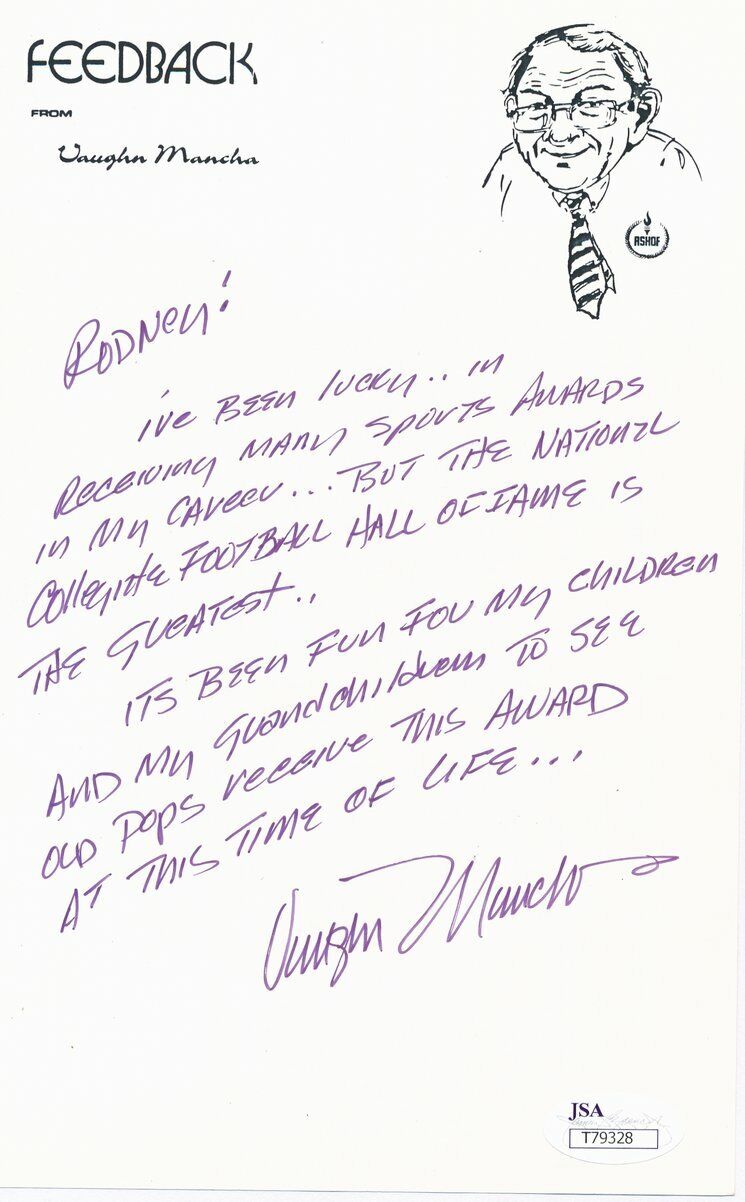 FEEDBACK
FROM
Vaughn Mancha
ASHOF
RODNEY!
I'VE BEEN LUCKY.. IN
RECEIVING MANY SPORTS AWARDS
IN MY CAREER... BUT THE NATIONAL
COLLEGIATE FOOTBALL HALL OF FAME IS
THE GREATEST..
ITS BEEN FUN FOR MY CHILDREN
AND MY GRANDCHILDREN TO SEE
OLD POPS RECEIVE THIS AWARD
AT THIS TIME OF LIFE...
Vaughn Mancha
JSA
T79328